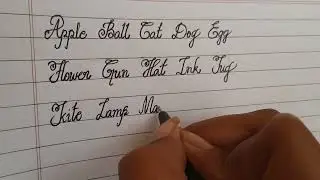 Apple Ball Cat Dog Egg
Flower Gun Hat Ink Jug
Kite Lamp Ma